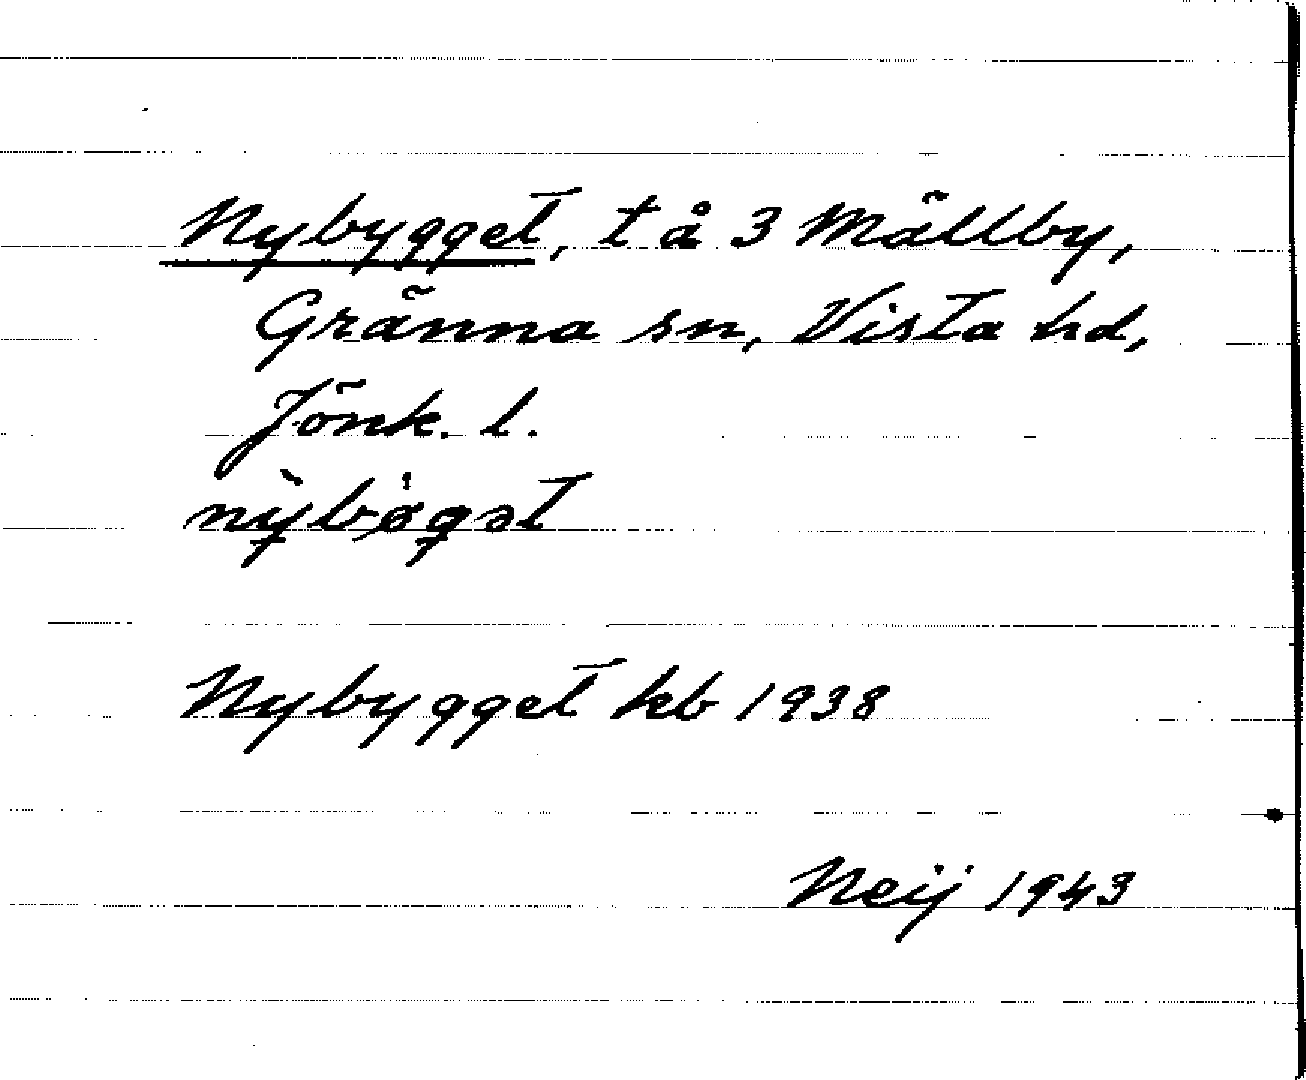 Nybygget, t å 3 Mällby,
Gränna sn, Vista hd,
Jönk. l.
nỳbøgət
Nybygget kb 1938
Neij 1943